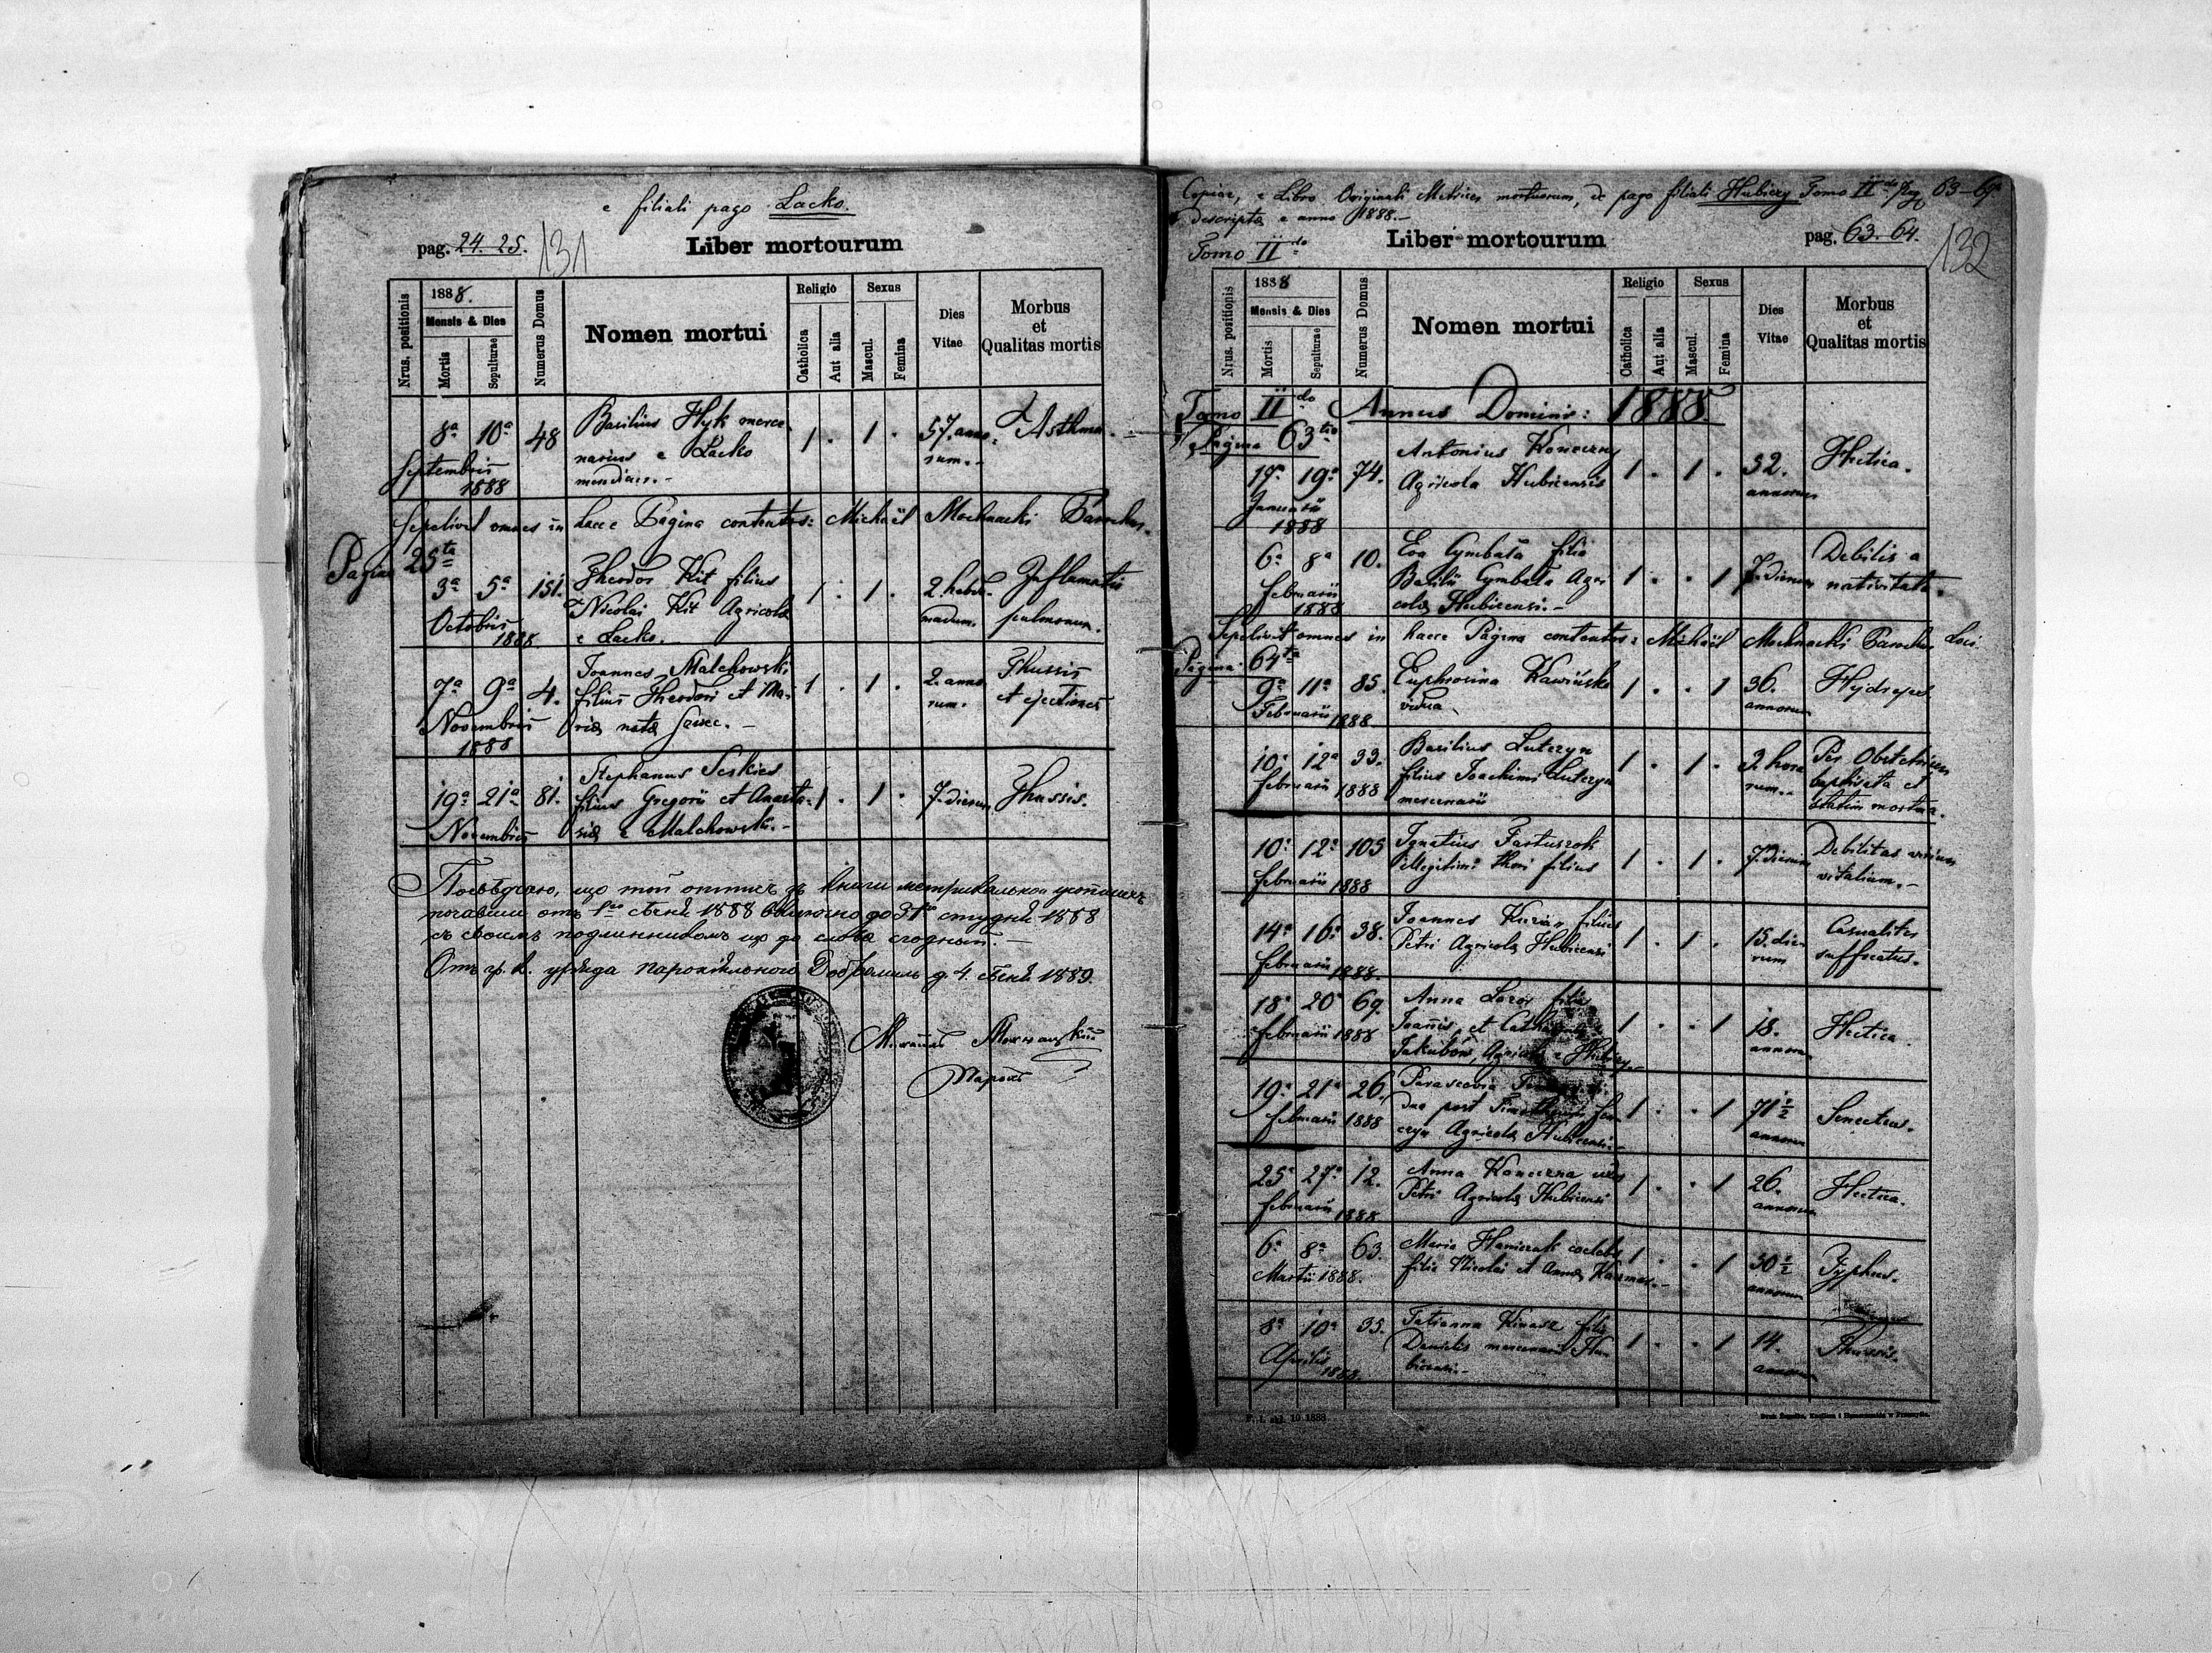 e filiali pago Lacko.
pag. 24. 25. 131
Liber mortourum
Nrus. positionis
1888.
Mensis & Dies
Mortis
Sepulturae
Numerus Domus
Nomen mortui
Religio
Catholica
Aut alia
Sexus
Mascul.
Femina
Dies
Vitae
Morbus
et
Qualitas mortis
8a 10a 48 Basilius Hyk merce- 1 . 1 . 57. anno- Asthma.
narius e Lacko rum.-
Septembris
1888
Sepelivit omnes in hacce Pagina contentos: Michaël Mochnacki Parochus.
Pagina 25ta
3a 5a 151. Theodor Kit filius 1 . 1 . 2. hebdo- Inflamatio
Nicolai Kit Agricola madum. pulmonum.
Octobris e Lacko.
1888.
7a 9a 4. Joannes Malchowski 1 . 1 . 2. anno- Thussis
filius Theodori et Ma- rum. et ejectiones
Novembris ria nata
1888
19a 21a 81. Stephanus 1 . 1 . 7. dierum Thussis.
filius Gregorii et Anasta-
Novembris sia e Malchowski.-
почавши отъ 1го сѣчня 1888 до 31го студня 1888
съ своимъ подлинникомъ що до слова згодный.-
Отъ гр. к. уряда парохіяльного Добромиль д. 4. сѣчня 1889.
Михаилъ Мохнацкій
Парохъ
Copiae, e Libro Originali Metrices mortuorum, de pago filiali Hubiczy Tomo IIdo Pag 63-69.
descripta e anno 1888.-
Tomo IIdo
Liber mortourum
pag. 63. 64. 132
Nrus. positionis
1888
Mensis & Dies
Mortis
Sepulturae
Numerus Domus
Nomen mortui
Religio
Catholica
Aut alia
Sexus
Mascul.
Femina
Dies
Vitae
Morbus
et
Qualitas mortis
Tomo IIdo Annus Domini: 1888.
Pagina 63tia
17a 19a 74. Antonius Koneczny 1 . 1 . 32. Hectica.
Januarii Agricola Hubicensis annorum
1888
6a 8a 10. Eva Cymbała filia 1 . . 1 7. dierum Debilis a
Februarii Basilii Cymbała Agri nativitate.
1888 cola Hubicensi.-
Sepelivit omnes in hacce Pagina contentos: Michaël Mochnacki Parochus Loci
Pagina 64ta
9a 11a 85. Euphrosina 1 . . 1 36.
Februarii 1888. vidua annorum
10a 12a 33. Basilius Luteryn 1 . 1 . 2 hora Per Obstetricem
Februarii 1888 filius Joachimi Luteryn rum.- baptisata et
mercenarii statim mortua.
10a 12a 105 Ignatius Fartuszok 1 . 1 . 7. dierum Debilitas virium
Februarii 1888 illegitimi thori filius vitalium.-
14a 16a 38. Joannes filius 1 . 1 . 15. die- Casualiter
Februarii 1888. Petri Agricola Hubicensi rum suffocatus.
18a 20a 69. Anna filia 1 . . 1 18. Hectica.
Februarii 1888 Joannis et annorum
Jakubow, Agricola e Hubiczy.-
19a 21a 26. Parascevia 1 . . 1 71 1/2 Senectus.
Februarii 1888 dua post annorum
Agricola Hubicensi.-
25a 27a 12. Anna Koneczna uxor 1 . . 1 26. Hectica.
Februarii 1888 Petri Agricola Hubicensi annorum
6a 8a 63. Maria coelebs 1 . . 1 30 1/2 Typhus.
Martii 1888. filia Nicolai et Anna annorum
8a 10a 35. Tatianna filia 1 . . 1 14. Thussis.
Aprilis Danielis mercenarii Hu- annorum
1888. bicensi.-